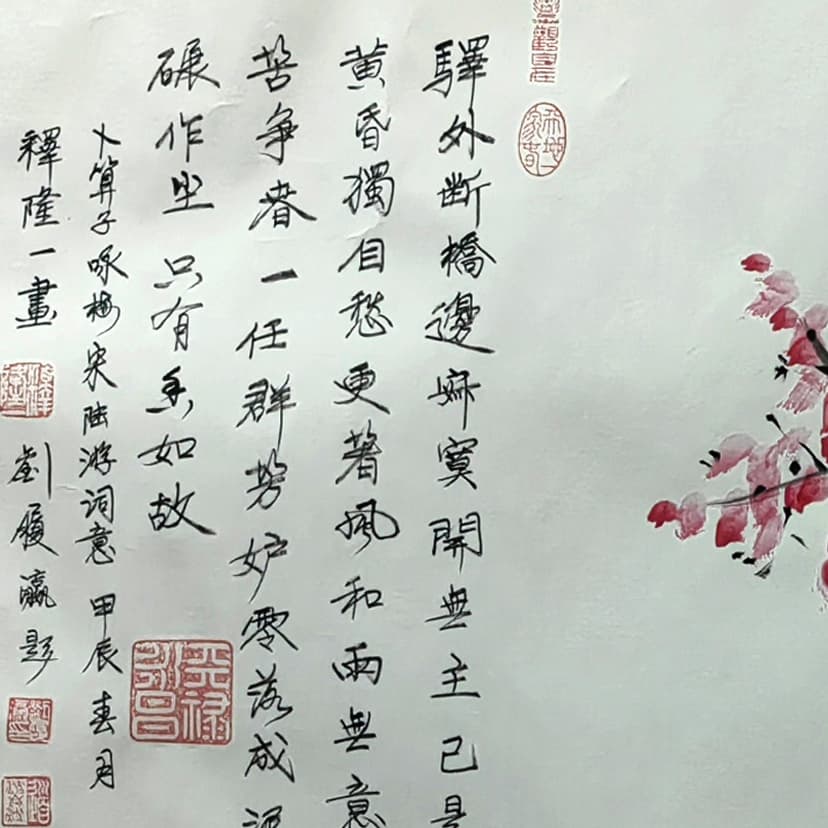 驛外斷橋邊寂寞開無主已是
黃昏獨自愁更著風和雨無意
苦爭春一任群芳妒零落成泥
碾作尘只有香如故
卜算子咏梅宋陸游詞意 甲辰春月
釋隆一畫 劉履瀛題